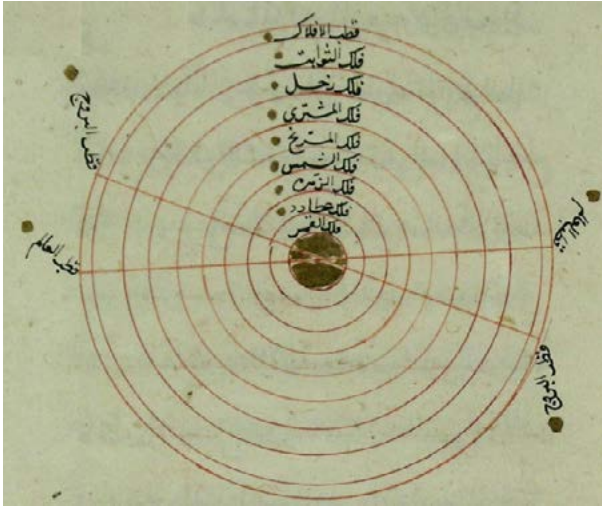 قطب الافلاك
فلك الثوابت
فلك زحل
فلك المشترى
فلك المريخ
فلك الشمس
فلك الزهره
فلك عطارد
فلك القمر
قطب البروج
قطب العالم
قطب البروج